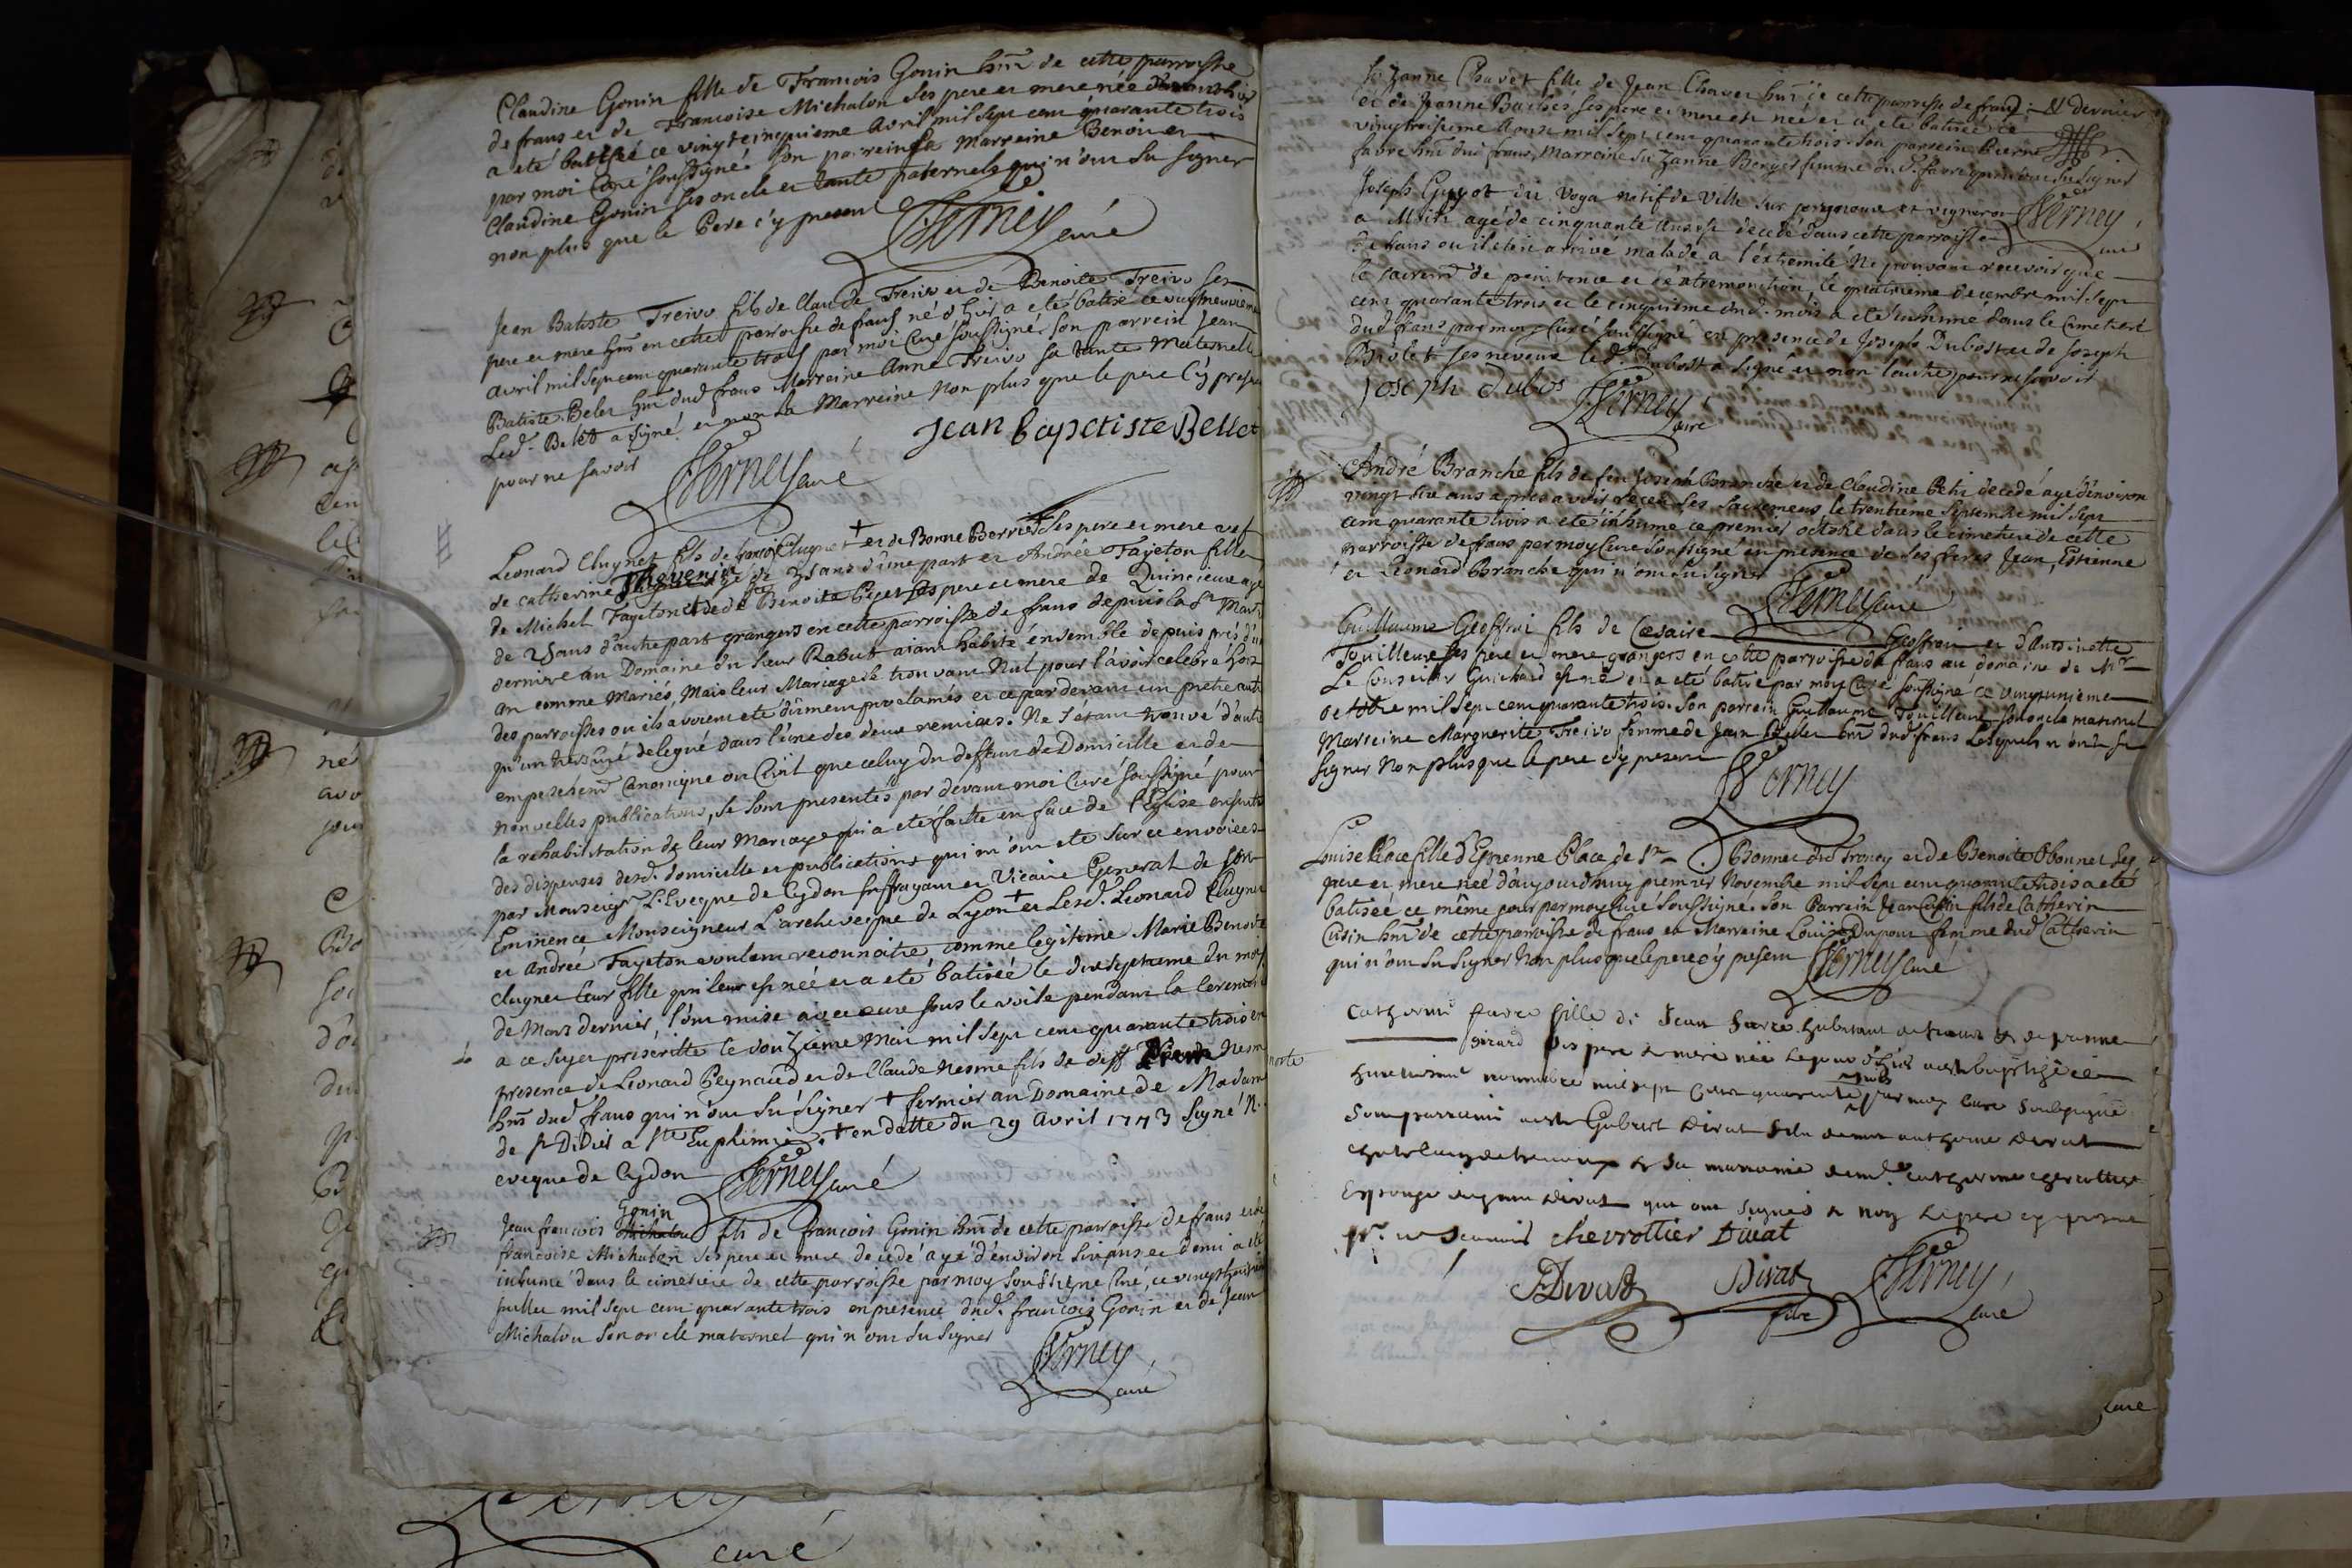 Claudine Gonin fille de Francois Gonin hnt de cette parroisse
de frans et de Francoise Michalon ses pere et mere née
a eté battisée ce vingtcinquieme Avril mil sept cent quarante trois
par moi Curé soussigné. Son parrein sa Marreine Benoit et
Claudine Gonin ses oncle et tante paternels qui n'ont su signer
non plus que le Pere c'y present
Verney curé
Jean Batiste Treivo fils de Claude Treivo et de Benoite Treivo ses
pere et mere hnts en cette parroisse de frans né d'hier a eté batisé ce vingtneuvieme
Avril mil sept cent quarante trois par moi Curé soussigné. Son parrein Jean
Batiste Belet hnt dud frans Marreine Anne Treivo sa tante Maternelle
Led. Belet a signé et non la Marreine Non plus que le pere c'y present
pour ne savoir
Jean baptiste Bellet
Verney curé
Leonard Clugnet fils de francois Clugnet + et de Bonne Berriet ses pere et mere
de catherine Thevenin agé de ans d'une part et Andrée Fayeton fille
de Michel Fayeton et de Benoite Piget ses pere et mere de Quincieux agée
de 25 ans d'autre part grangers en cette parroisse de frans depuis la St Martin
derniere au Domaine du sieur Rabut aiant habité ensemble depuis près d'un
an comme Mariés, Mais leur Mariage se trouvant Nul pour l'avoir celebré hors
des parroisses ou ils avoient eté dûment proclamés et ce pardevant un pretre autre
qu'un tiers curé delegué dans l'une des deux remises. Ne s'etant trouvé d'autre
empeschemt Canonique ou Civil que celuy du deffaut de Domicille et de
nouvelles publications, se sont presentés par devant moi Curé soussigné pour
la rehabilitation de leur Mariage qui a eté faitte en face de l'Eglise ensuite
des dispenses desd. domicille et publications qui m'ont eté sur ce envoiées
par Monseigr L'Eveque de Cydon suffragant et Vicaire General de son
Eminence Monseigneur L'archeveque de Lyon + et Lesd. Leonard Clugnet
et Andrée Fayeton voulant reconnaitre comme legitime Marie Benoite
Clugnet leur fille qui leur est née et a eté batisée le dixseptieme du moy
de Mars dernier, l'ont mise avec eux sous le voile pendant la ceremonie
a ce sujet prescritte le douzieme Mai mil sept cent quarante trois en
presence de Leonard Peynaud et de Claude Nesme fils de deff Nesme
hnts dud frans qui n'ont su signer + fermier au Domaine de Madame
de St Didier a Ste Euphemie. + en datte du 29 Avril 1743 signé N.
eveque de Cydon
Verney curé
Gonin
Jean francois Michalon fils de francois Gonin hnt de cette parroisse de frans et de
francoise Michalon ses pere et mere decedé agé d'environ six ans et demi a eté
inhumé dans le cimetiere de cette parroisse par moy soussigné Curé, ce
juillet mil sept cent quarante trois en presence dud. francois Gonin et de Jean
Michalon son oncle maternel qui n'ont su signer
Verney
curé
Suzanne Chavet fille de Jean Chavet hnt de cette parroisse de frans
et de Jeanne ses pere et mere est née et a eté batisée ce
vingtroisieme Aoust mil sept cent quarante trois. Son parrein Pierre
favre hnt dud frans, Marreine Suzanne Berger femme dud. favre qui n'ont su signer
Verney
curé
Joseph Guyot du Voga natif de Ville sur et vigneron
a agé de cinquante ans est decedé dans cette parroisse
de frans ou il etoit arrivé malade a l'extremité Ne pouvant recevoir que
le sacremt de penitence et l'extremonction, le quatrieme decembre mil sept
cent quarante trois et le cinquieme dud. mois a eté inhumé dans le Cimetiere
dud frans par moy Curé soussigné en presence de Joseph Dubost et de Joseph
Brolet ses neveux led. Dubost a signé et non l'autre pour ne savoir
Joseph dubos
Verney
curé
André Branche fils de feu Joseph Branche et de Claudine Petit decedé agé d'environ
vingt six ans apres avoir receu ses sacremens, le trentieme septembre mil sept
cent quarante trois a eté inhumé ce premier octobre dans le cimetiere de cette
parroisse de frans par moy Curé soussigné en presence de ses freres Jean, Estienne
et Leonard Branche qui n'ont su signer
Verney curé
Guillaume Geoffrai fils de Cesaire Geoffrai et d'Antoinette
Touilleux ses pere et mere grangers en cette parroisse de frans au domaine de Mr
Le Conseiller Guichard est né et a eté batisé par moy Curé soussigné ce vingtunieme
octobre mil sept cent quarante trois. Son parrein Guillaume Touilleux son oncle maternel
Marreine Marguerite Treivo femme de Jean Belet hnt dud frans Lesquels n'ont su
signer Non plus que le pere c'y present
Verney
Louise Place fille d'Etienne Place de St Bonnet de Troncy et de Benoite Bonnet ses
pere et mere née d'aujourdhuy premier Novembre mil sept cent quarante trois a eté
batisée ce même jour par moy Curé soussigné. Son Parrein Jean Cusin fils de Catherin
Cusin hnt de cette parroisse de frans et Marreine Louise Dupont femme dud Catherin
qui n'ont su signer Non plus que le pere c'y present
Verney curé
Catherine favre fille de Jean favre habitant de frans et de Jeanne
Girard ses pere et mere née le jour d'hier a eté baptisée ce
huitiesme novembre mil sept cent quarante trois par moy curé soubsigné
Son parrain a eté Gabriel Divat fils de Mre anthoine Divat
chatelain de trevoux et sa marraine demlle Catherine chevrottier
Epouse de Divat qui ont signés et non le pere cy present
pr ne scavoir chevrottier Divat
Divat Divat
fils
Verney
curé